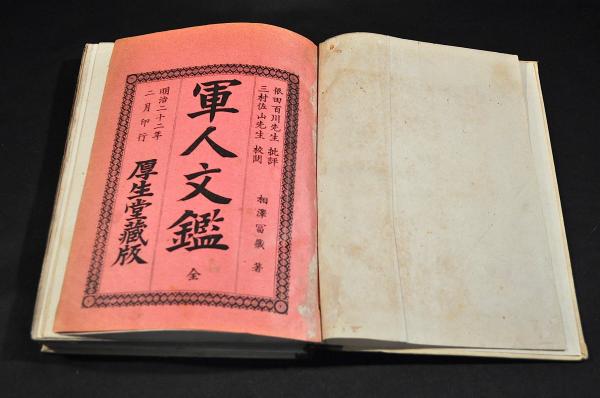 依田百川先生 批評
三村佐山先生 校閲
相澤冨藏 著
軍人文鑑 全
明治二十二年
二月印行
厚生堂藏版